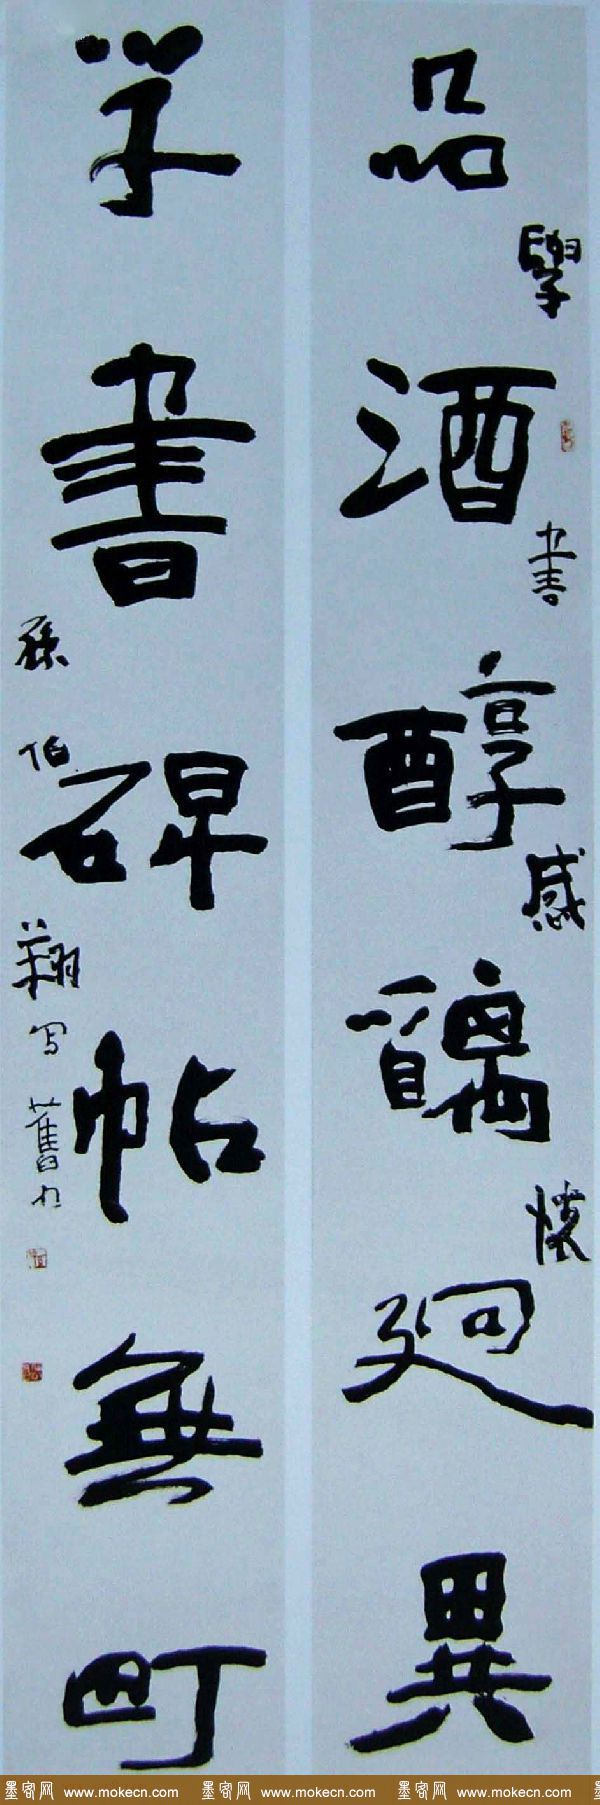 品酒醇醨廻異
學書感懷
学書碑帖無町
孫伯翔写舊句
墨客网 www.mokecn.com 墨客网 www.mokecn.com 墨客网 www.mokecn.com